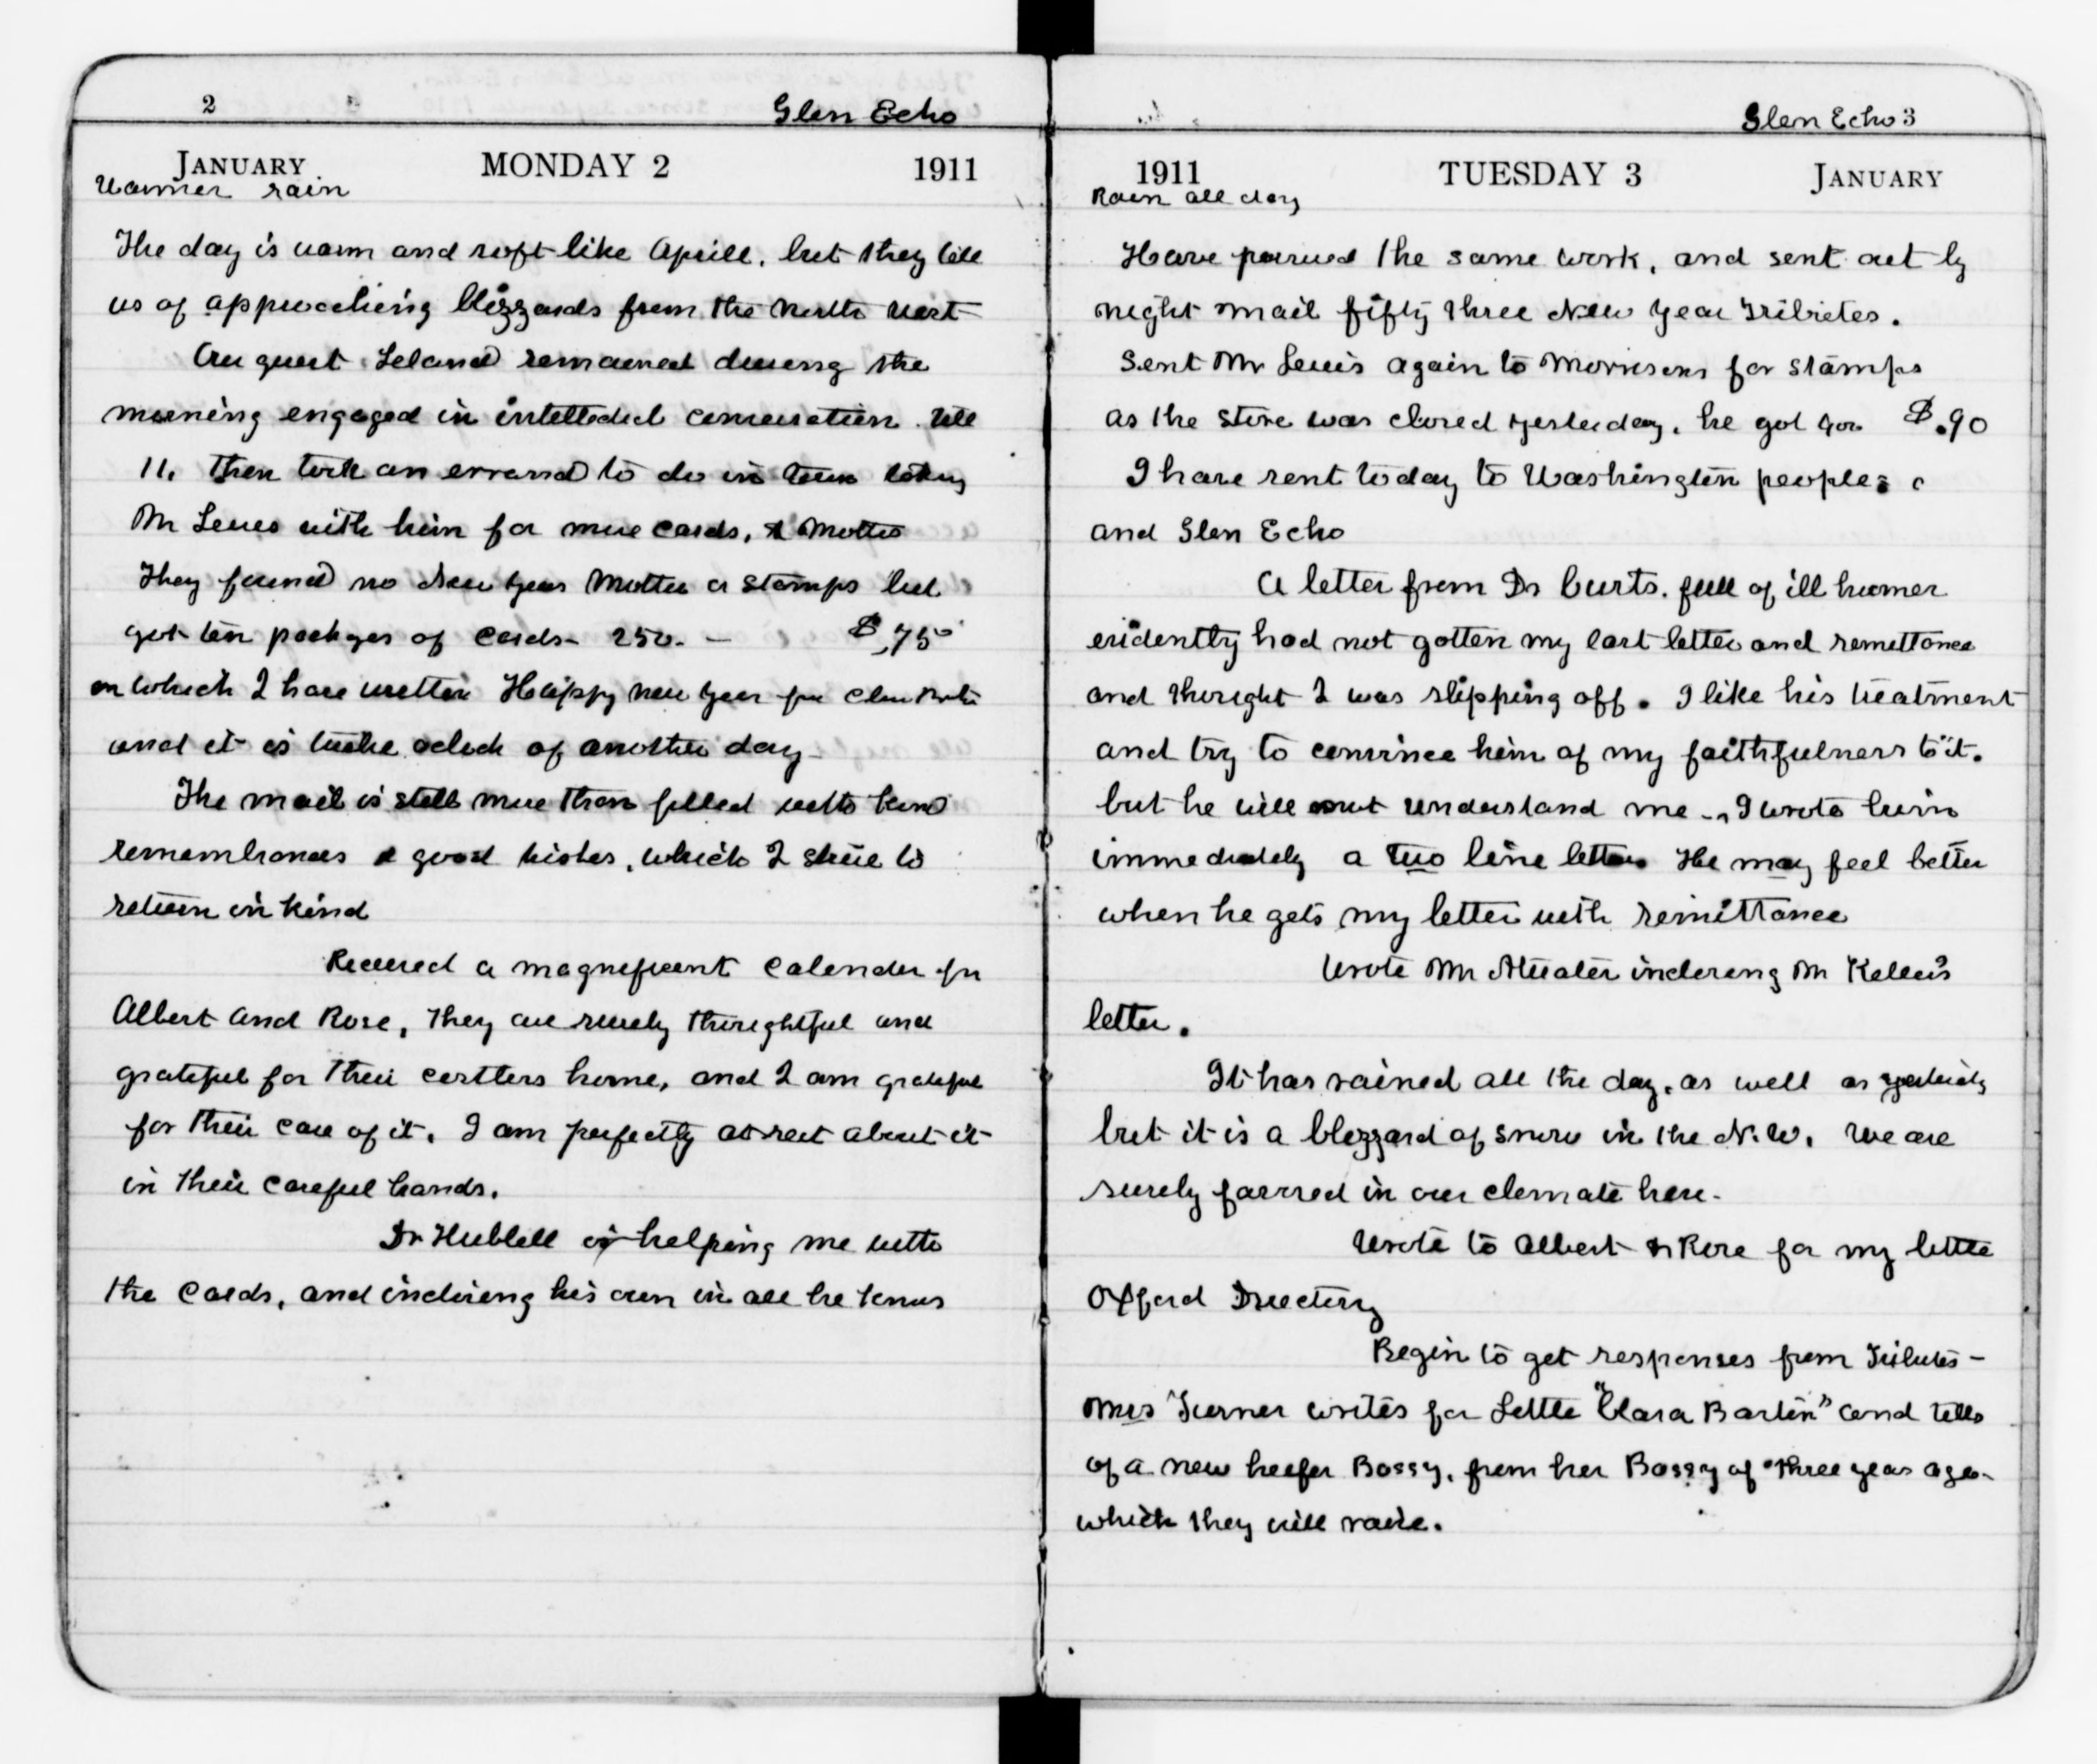 2 Glen Echo
JANUARY MONDAY 2 1911
Warmer rain
The day is warm and soft like Aprill, but they tell
us of approaching blizzards from the North West
Our guest Leland remained during the
morning engaged in intellectual conversation till
11. Then took an errand to do in town taking
Mr Lewis with him for more cards, & Mottos
They found no New Years Mottos or stamps but
got ten packges of cards - 250. - $,75
on which I have written Happy new Year from Clara Barton
and it is twelve oclock of another day -
The mail is still more than filled with kind
remembrances & good wishes, which I strive to
return in kind
Received a magnificent Calender from
Albert and Rose, they are surely thoughtful and
grateful for their costless home, and I am grateful
for their care of it. I am perfectly at rest about it
in their careful hands.
Dr Hubbell is helping me with
the cards, and inclosing his own in all he knows
Glen Echo 3
1911 TUESDAY 3 JANUARY
Rain all day
Have pursued the same work, and sent out by
night mail fifty three New Year Tributes.
Sent Mr Lewis again to Morrisons for stamps
as the store was closed yesterday, he got for $.90
I have sent today to Washington people
and Glen Echo
A letter from Dr Curts. full of ill humer
evidently had not gotten my last letter and remittance
and thought I was slipping off. I like his treatment
and try to convince him of my faithfulness to it.
but he will not understand me -, I wrote him
immediately a two line letter He may feel better
when he gets my letter with remittance
Wrote Mr Atwater inclosing Mr Kellers
letter.
It has rained all the day, as well as yesterday
but it is a blizzard of snow in the N.W. we are
surely favored in our climate here -
Wrote to Albert & Rose for my little
Oxford Directory
Begin to get responses from Tributes -
Mrs Turner writes for Little "Clara Barton" and tells
of a new heifer Bossy, from her Bossy of three years ago -
which they will raise.